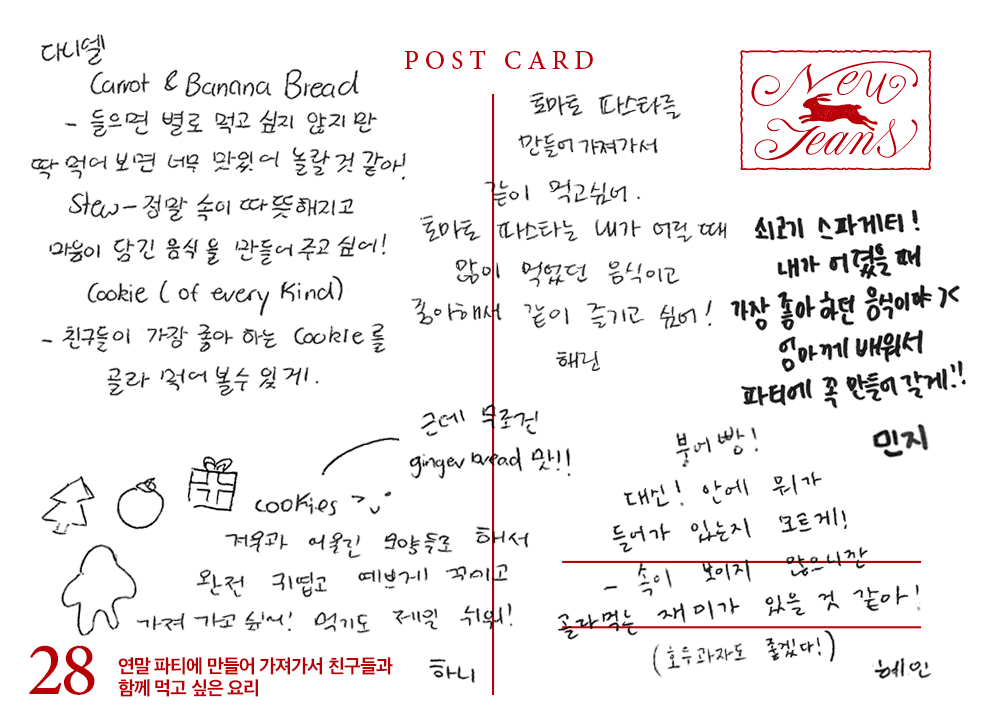 POST CARD
New
Jeans
다니엘
Carrot & Banana Bread
- 들으면 별로 먹고 싶지 않지만
딱 먹어 보면 너무 맛있어 놀랄 것 같아!
Stew - 정말 속이 따뜻해지고
마음이 담긴 음식을 만들어 주고 싶어!
Cookie (of every kind)
- 친구들이 가장 좋아 하는 Cookie를
골라 먹어 볼수 있게.
토마토 파스타를
만들어 가져가서
같이 먹고싶어.
토마토 파스타는 내가 어릴 때
많이 먹었던 음식이고
좋아해서 같이 즐기고 싶어!
해린
쇠고기 스파게티!
내가 어렸을 때
가장 좋아하던 음식이야 ><
엄마께 배워서
파티에 꼭 만들어 갈게!!
민지
근데 무조건
gingerbread 맛!!
cookies
겨울과 어울린 모양들로 해서
완전 귀엽고 예쁘게 꾸미고
가져 가고 싶어! 먹기도 제일 쉬워!
하니
붕어빵!
대신! 안에 뭐가
들어가 있는지 모르게!
- 속이 보이지 않으니깐
골라먹는 재미가 있을 것 같아!
(호두과자도 좋겠다!)
혜인
28
연말 파티에 만들어 가져가서 친구들과
함께 먹고 싶은 요리